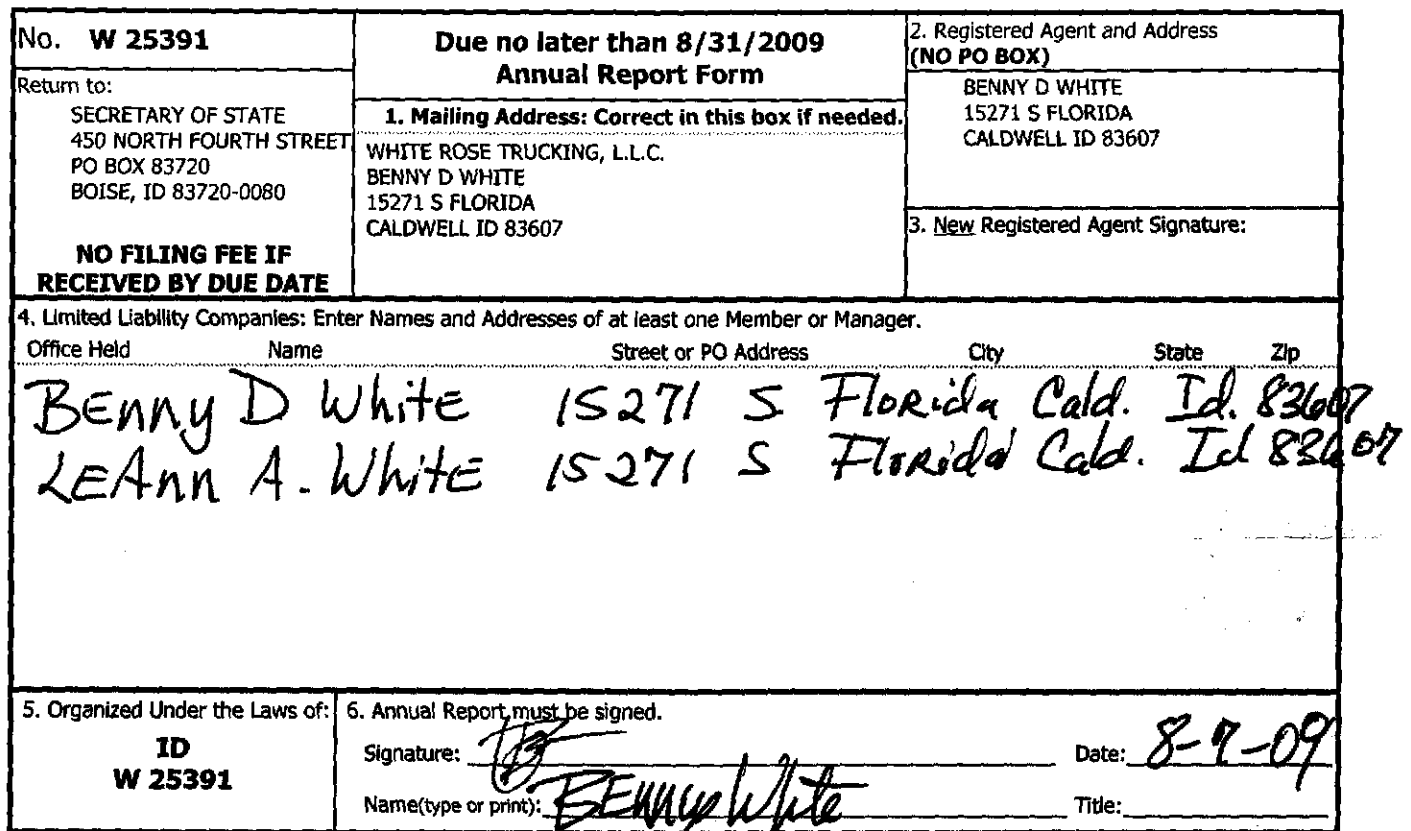 No. W 25391
Return to:
SECRETARY OF STATE
450 NORTH FOURTH STREET
PO BOX 83720
BOISE, ID 83720-0080
NO FILING FEE IF
RECEIVED BY DUE DATE
Due no later than 8/31/2009
Annual Report Form
1. Mailing Address: Correct in this box if needed.
WHITE ROSE TRUCKING, L.L.C.
BENNY D WHITE
15271 S FLORIDA
CALDWELL ID 83607
2. Registered Agent and Address
(NO PO BOX)
BENNY D WHITE
15271 S FLORIDA
CALDWELL ID 83607
3. New Registered Agent Signature:
4. Limited Liability Companies: Enter Names and Addresses of at least one Member or Manager.
Office Held Name Street or PO Address City State Zip
BEnny D White 15271 S FloRida Cald. Id. 83607
LEAnn A. WhitE 15271 S FloRida Cald. Id 83607
5. Organized Under the Laws of:
ID
W 25391
6. Annual Report must be signed.
Signature: Date: 8-7-09
Name(type or print): BEnny White Title: